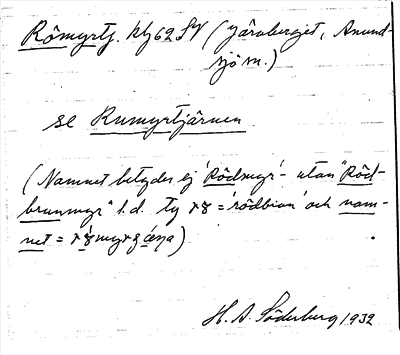 Römyrtj. kbg 62 SV (Järnberget, Anund-
sjö sn.)
se Rumyrtjärnen
(Namnet betyder ej 'Rödmyr'- utan "Röd-
brunmyr" l.d. ty rö = 'rödbrun' och nam-
net =
H. A. Söderberg 1932